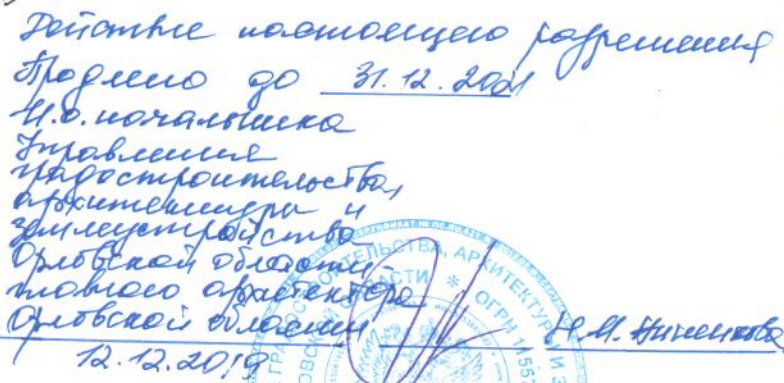 Действие настоящего разрешения
Продлено до 31.12.2021
И.о. начальника
Управления
градостроительства,
архитектуры и
землеустройства
Орловской области
главного архитектора
Орловской области
12.12.2019
ГРАДОСТРОИТЕЛЬСТВА, АРХИТЕКТУРЫ И З
ОВСКОЙ ОБЛАСТИ * ОГРН 1155